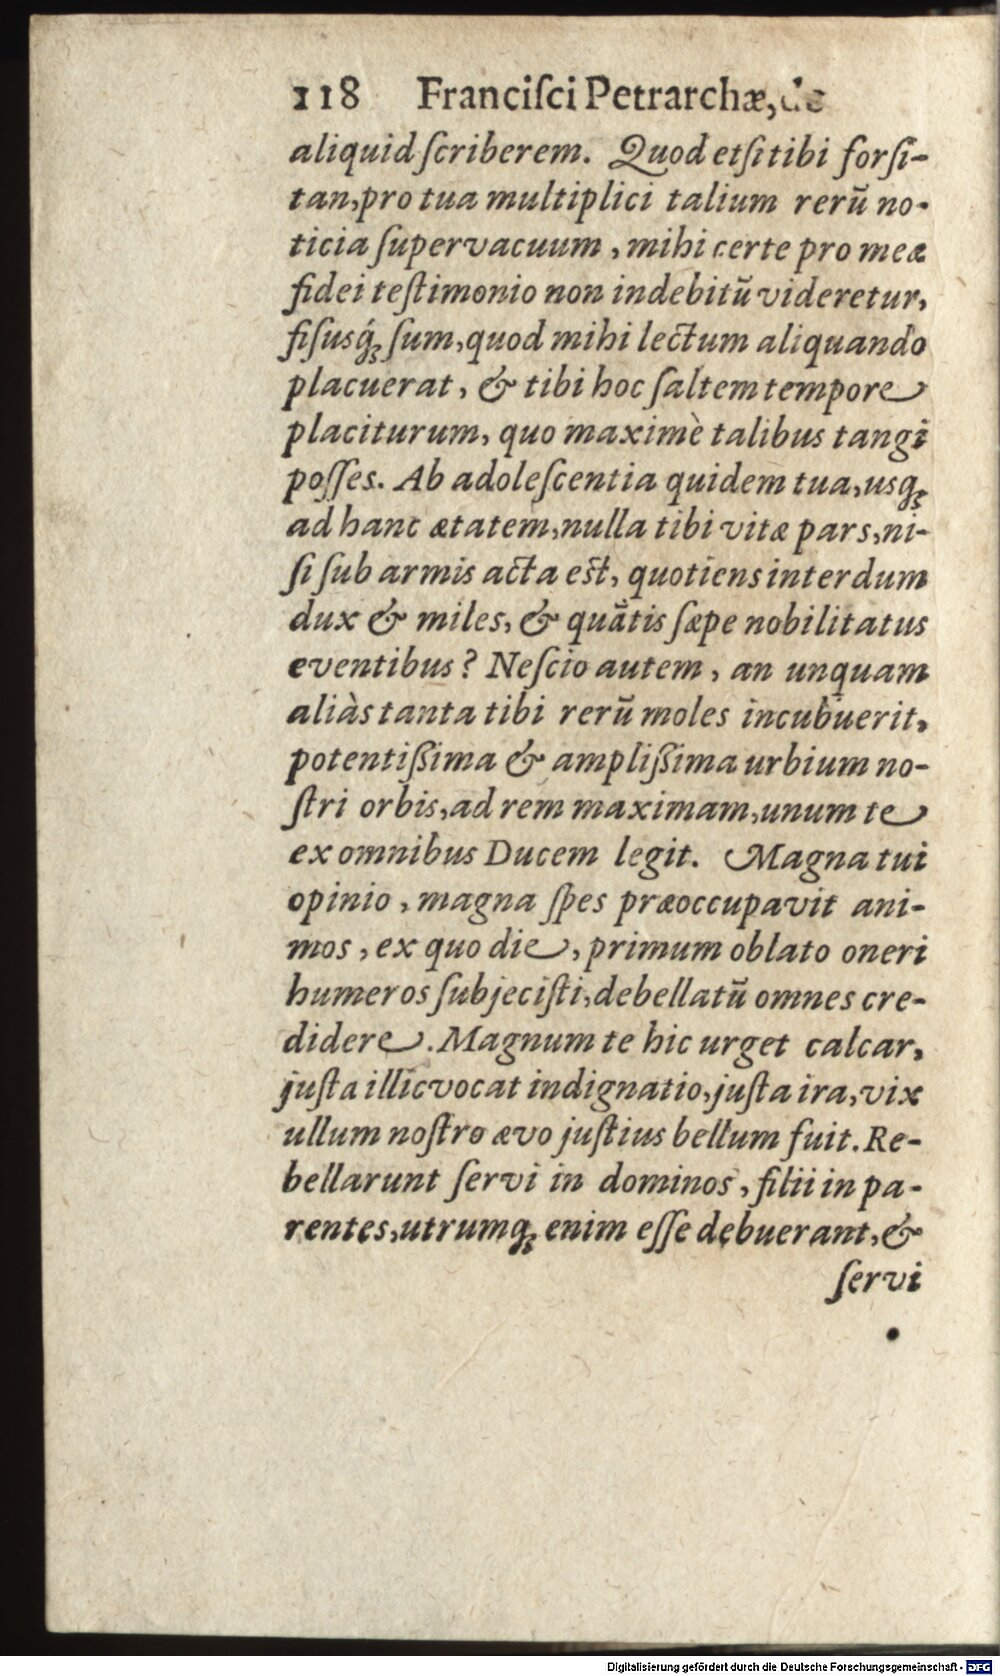 118 Franciſci Petrarchæ, de
aliquid ſcriberem. Quod etſi tibi forſi-
tan, pro tua multiplici talium rerū no-
ticia ſupervacuum, mihi certe pro meæ
fidei teſtimonio non indebitū videretur,
fiſusq́ꝫ ſum, quod mihi lectum aliquando
placuerat, & tibi hoc ſaltem tempore
placiturum, quo maximè talibus tangi
poſſes. Ab adoleſcentia quidem tua, usqꝫ
ad hanc ætatem, nulla tibi vitæ pars, ni-
ſi ſub armis acta eſt, quotiens interdum
dux & miles, & quātis ſæpe nobilitatus
eventibus? Neſcio autem, an unquam
aliàs tanta tibi rerū moles incubuerit,
potentißima & amplißima urbium no-
ſtri orbis, ad rem maximam, unum te
ex omnibus Ducem legit. Magna tui
opinio, magna ſpes præoccupavit ani-
mos, ex quo die, primum oblato oneri
humeros ſubjeciſti, debellatū omnes cre-
didere. Magnum te hic urget calcar,
juſta illic vocat indignatio, juſta ira, vix
ullum noſtro ævo juſtius bellum fuit. Re-
bellarunt ſervi in dominos, filii in pa-
rentes, utrumqꝫ enim eſſe debuerant, &
ſervi
Digitalisierung gefördert durch die Deutsche Forschungsgemeinschaft - DFG